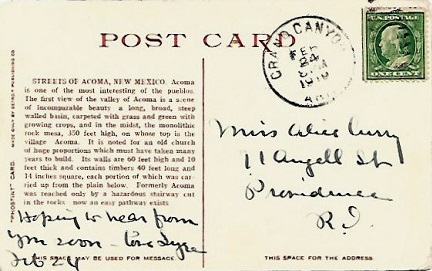 POST CARD
GRAND CANYON
FEB
24
ARIZ.
U.S. POSTAGE
ONE CENT
"PHOSTINT" CARD.
STREETS OF ACOMA, NEW MEXICO. Acoma
is one of the most interesting of the pueblos.
The first view of the valley of Acoma is a scene
of incomparable beauty a long, broad, steep
walled basin, carpeted with grass and green with
growing crops, and in the midst, the monolithic
rock mesa, 350 feet high, on whose top is the
village Acoma. It is noted for an old church
of huge proportions which must have taken many
years to build. Its walls are 60 feet high and 10
feet thick and contains timbers 40 feet long and
14 inches square, each portion of which was car-
ried up from the plain below. Formerly Acoma
was reached only by a hazardous stairway cut
in the rocks now an easy pathway exists
Hoping to hear from
you soon -
Feb 24
THIS SPACE MAY BE USED FOR MESSAGE.
Miss Alice Curry
11 Angell St
Providence
R.I.
THIS SPACE FOR THE ADDRESS.